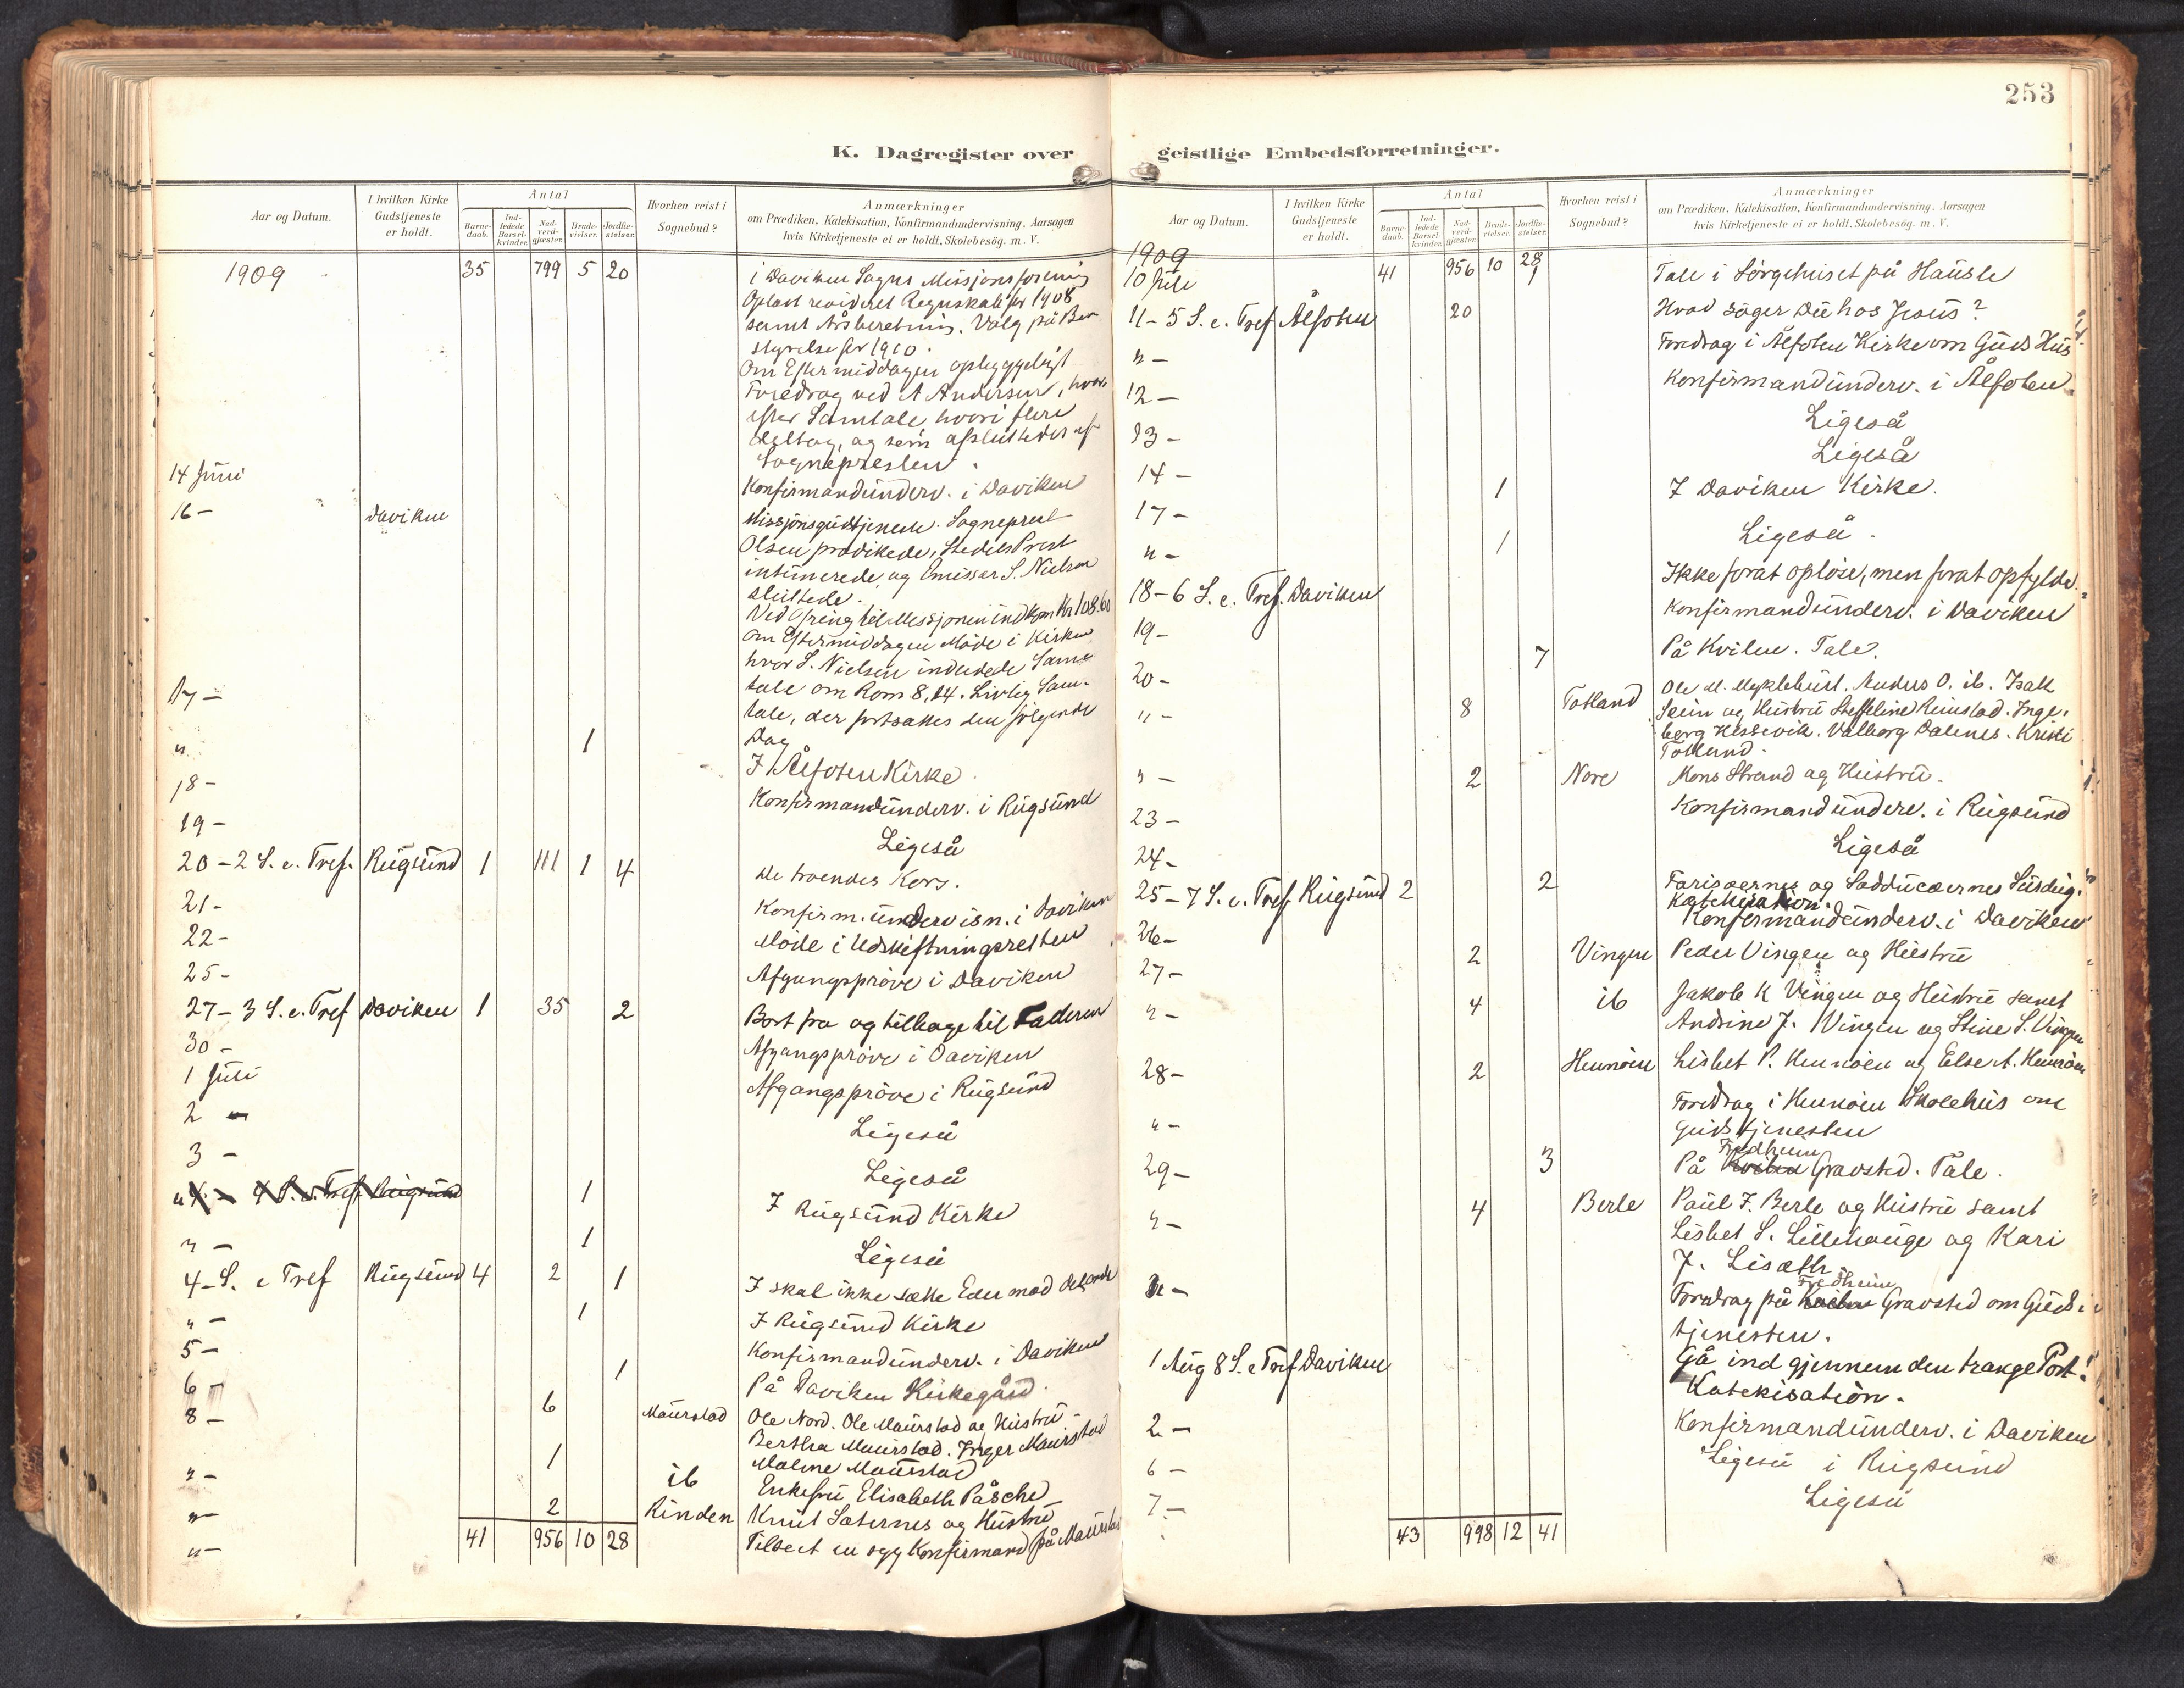 253
K. Dagregister over geistlige Embedsforretninger.
Aar og Datum.
I hvilken Kirke Gudstjeneste er holdt.
Antal
Barne-daab.
Ind-ledede Barsel-kvinder.
Nad-verd-gjæster.
Brude-vielser.
Jordfæ-stelser.
Hvorhen reist i Sognebud?
Anmærkninger
om Prædiken, Katekisation, Konfirmandundervisning, Aarsagen
hvis Kirketjeneste ei er holdt, Skolebesög. m. V.
1909 35 799 5 20 i Daviken Sogns Missjonsforening
Oplæst revideret Regnskab for 1908
samt Årsberetning. Valg på Be-
styrelse for 1910.
Om Eftermiddagen opbyggeligt
Foredrag ved A Andersen, hvor-
efter Samtale, hvori flere
deltog, og som afsluttedes af
Sognepresten.
14 Juni Konfirmandunderv. i Daviken
16 - Daviken Missjonsgudstjeneste. Sogneprest
Olsen prædikede, Stedets Prest
intimerede, og Emissær S. Nielsen
sluttede.
Ved Ofring til Missjonen indkom Kr 108.60
Om Eftermiddagen Møde i Kirken
hvor S. Nielsen indledede Sam-
17 - tale om Rom 8,14. Livlig Sam-
tale, der fortsattes den følgende
Dag
" 1 I Ålfoten Kirke.
18 - Konfirmandunderv. i Rugsund
19 - Ligeså
20 - 2 S. e. Tref. Rugsund 1 111 1 4 De troendes Kors.
21 - Konfirm. undervisn. i Daviken
22 - Møde i Udskiftningsretten
25 - Afgangsprøve i Daviken
27 - 3 S. e. Tref Daviken 1 35 2 Bort fra og tilbage til Faderen
30 - Afgangsprøve i Daviken
1 Juli Afgangsprøve i Rugsund
2 - Ligeså
3 - Ligeså
" 4 - 4 S. e. Tref. Rugsund 1 I Rugsund Kirke
" - 1 Ligeså
4 - S. e Tref Rugsund 4 2 1 I skal ikke sætte Eder mod det onde
" - 1 I Rugsund Kirke
5 - Konfirmandunderv. i Daviken
6 - 1 På Daviken Kirkegård.
8 - 6 Maurstad Ole Nord. Ole Maurstad og Hustru
Bertha Maurstad. Inger Maurstad
Malene Maurstad
" - 1 ib Enkefru Elisabeth Påsche
" - 2 Rinden Knut Sæternes og Hustru
" - 41 956 10 28 Tilseet en syg Konfirmand på Maurstad
Aar og Datum.
I hvilken Kirke Gudstjeneste er holdt.
Antal
Barne-daab.
Ind-ledede Barsel-kvinder.
Nad-verd-gjæster.
Brude-vielser.
Jordfæ-stelser.
Hvorhen reist i Sognebud?
Anmærkninger
om Prædiken, Katekisation, Konfirmandundervisning, Aarsagen
hvis Kirketjeneste ei er holdt, Skolebesög. m. V.
1909
10 Juli 41 956 10 28 1 Tale i Sørgehuset på Hausle
11 - 5 S. e. Tref Ålfoten 20 Hvad søger Du hos Jesus?
" - Foredrag i Ålfoten Kirke om Guds Hus
12 - Konfirmandunderv. i Ålfoten
13 - Ligeså
14 - Ligeså
17 - 1 I Daviken Kirke.
" - 1 Ligeså.
18 - 6 S. e. Tref. Daviken Ikke forat opløse, men forat opfylde.
19 - Konfirmandunderv. i Daviken
20 - 7 På Kvilen. Tale.
" - 8 Totland Ole M. Myklebust. Anders O. ib. Isak
Seim og Hustru Steffeline Rimstad. Inge-
borg Hessevik. Valborg Dalenes. Kristi
Totland.
" - 2 Nore Mons Strand og Hustru.
23 - Konfirmandunderv. i Rugsund
24 - Ligeså
25 - 7 S. e. Tref Rugsund 2 2 Farisæernes og Sadducæernes Surdeig.
Katekisation.
26 - Konfirmandunderv. i Daviken
27 - 2 Vingen Peder Vingen og Hustru
" - 4 ib Jakob K Vingen og Hustru samt
Andrine J. Vingen og Stine S. Vingen
28 - 2 Hennøen Lisbet P. Hennøen og Else A. Hennøen
" - Foredrag i Hennøen Skolehus om
Gudstjenesten
29 - 3 På Kvilen Fredheim Gravsted. Tale.
" - 4 Berle Paul J. Berle og Hustru samt
Lisbet S. Lillehauge og Kari
J. Lisæth.
" - Foredrag på Kvilen Fredheim Gravsted om Guds-
tjenesten.
1 Aug 8 S. e Tref Daviken Gå ind gjennem den trange Port!
Katekisation.
2 - Konfirmandunderv. i Daviken
6 - Ligeså i Rugsund
7 - Ligeså
43 998 12 41